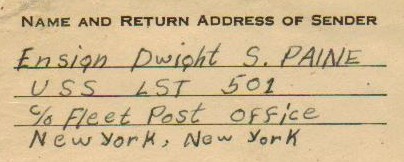 NAME AND RETURN ADDRESS OF SENDER
Ensign Dwight S. PAINE
USS LST 501
c/o Fleet Post Office
New York, New York